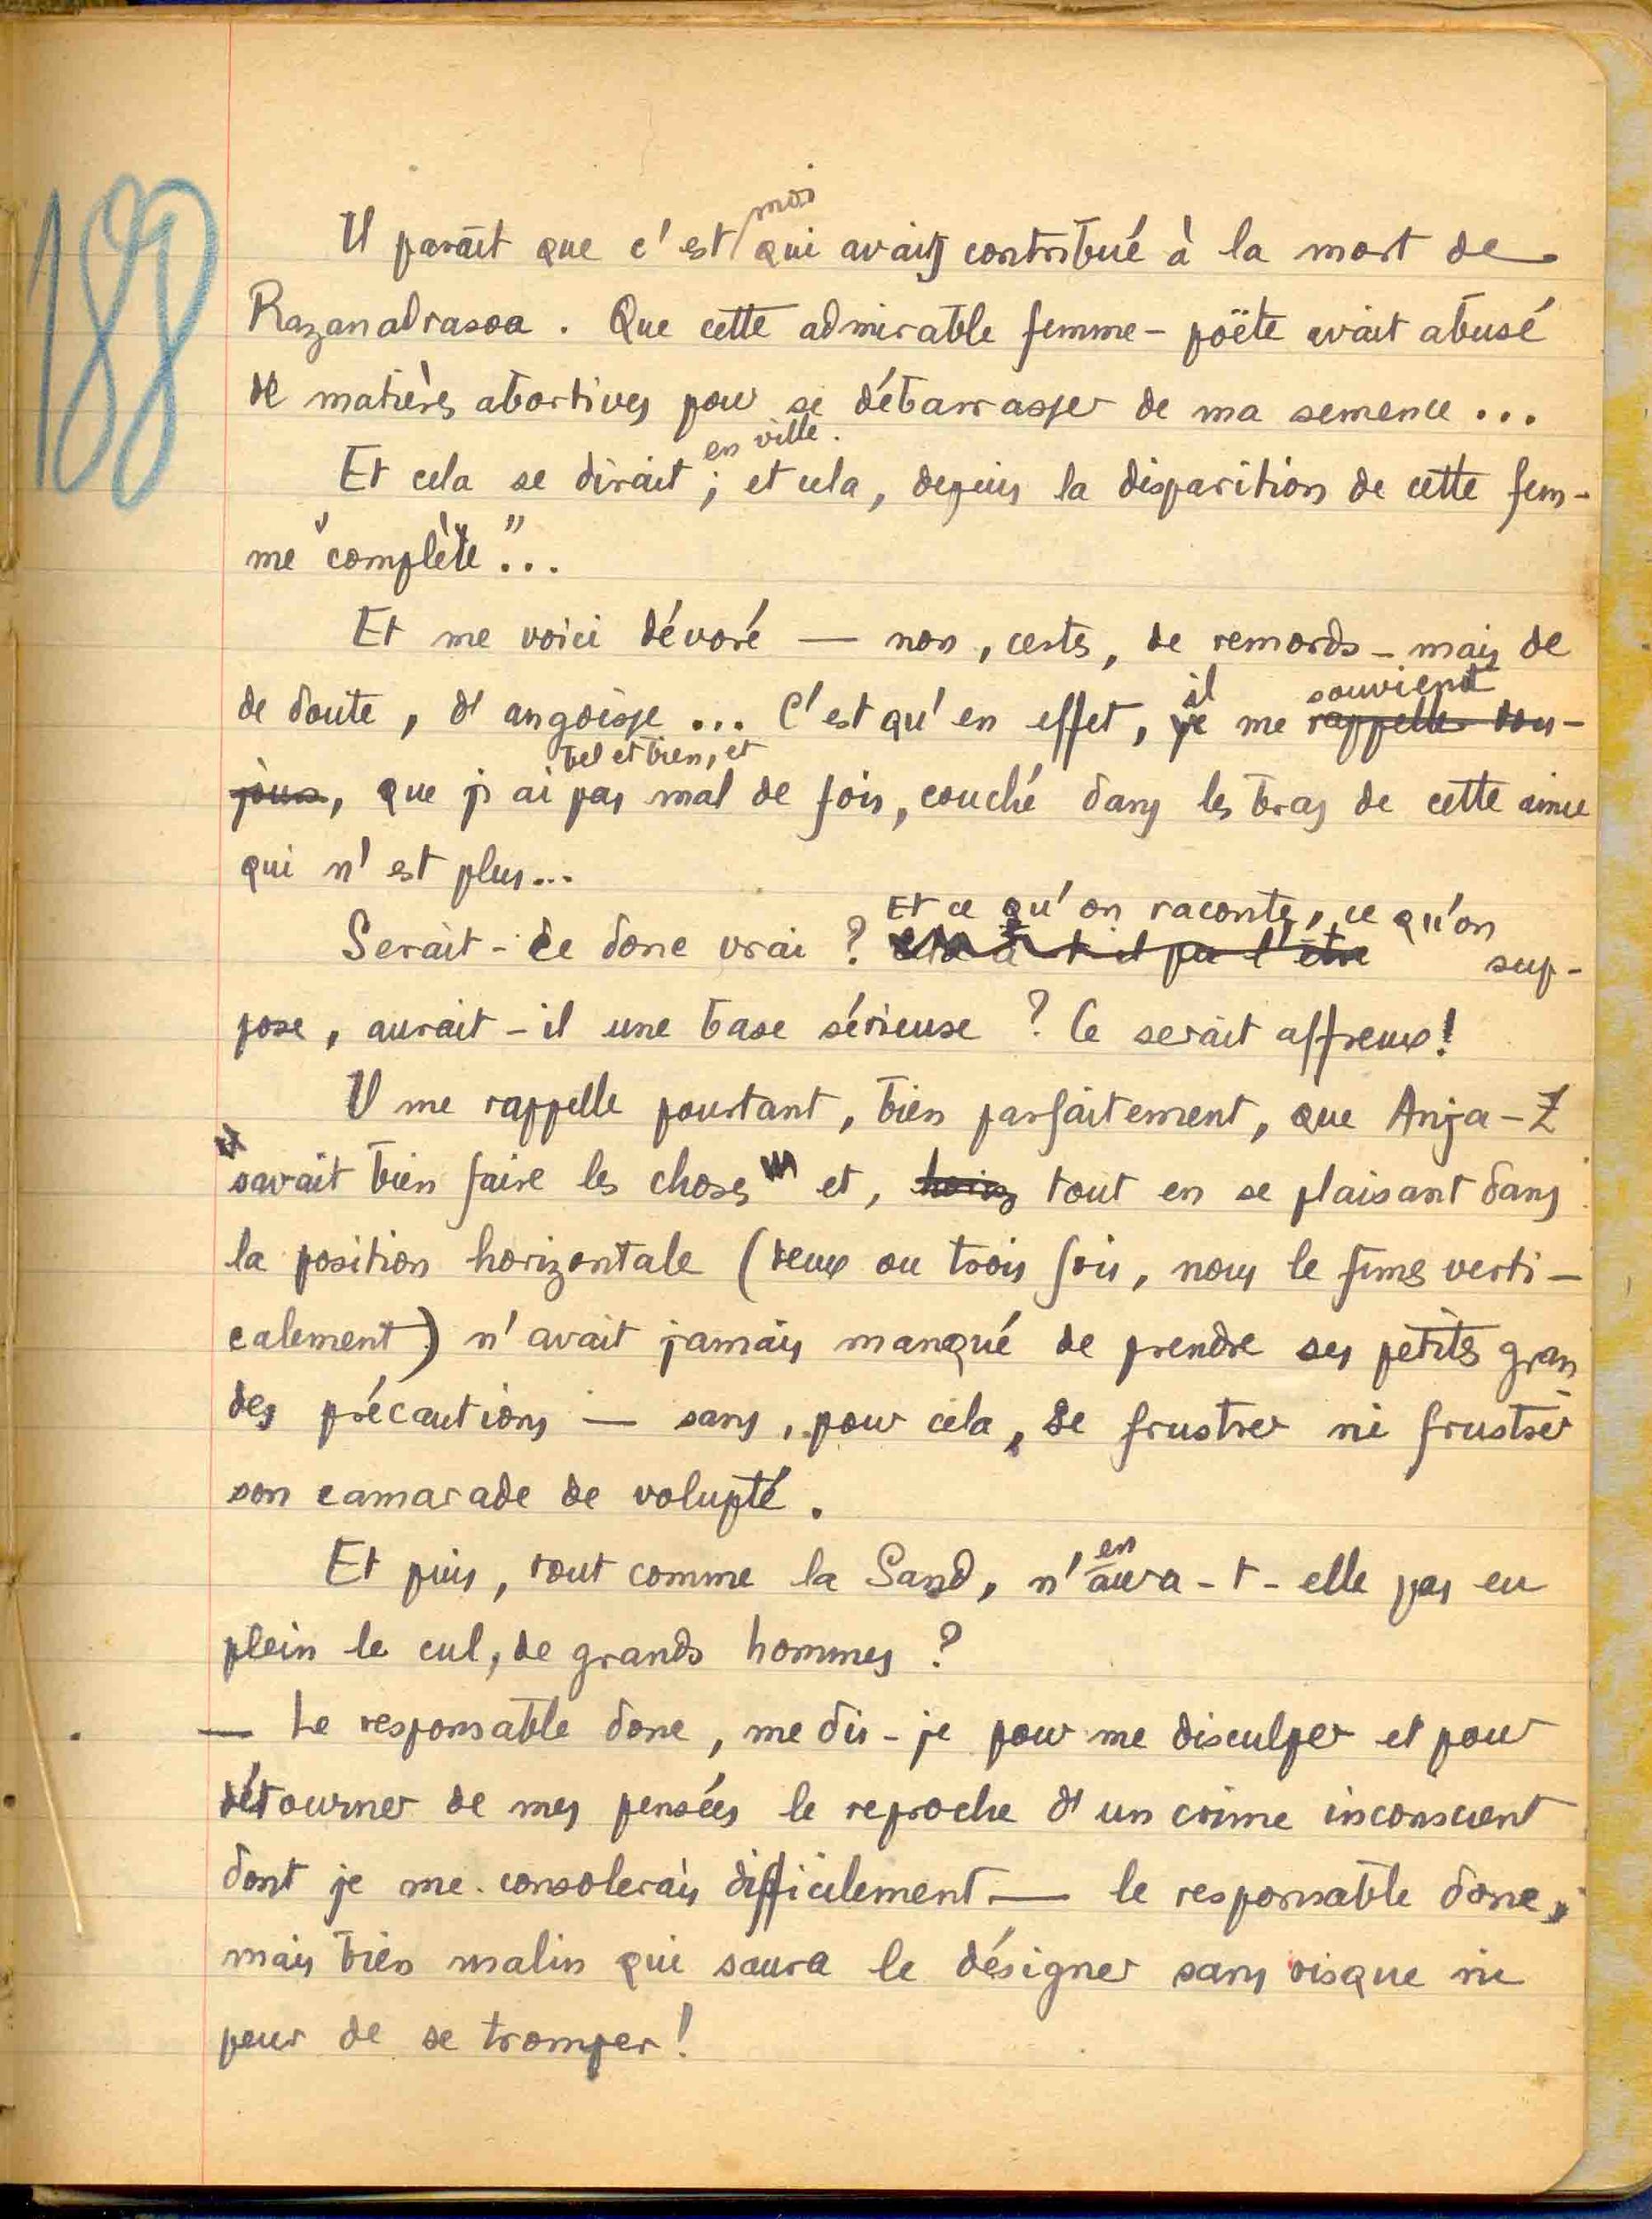 188
Il paraît que c'est moi qui avais contribué à la mort de
Razanadrasoa. Que cette admirable femme-poëte avait abusé
de matières abortives pour se débarrasser de ma semence...
Et cela se dirait en ville ; et cela, depuis la disparition de cette fem-
me "complète"...
Et me voici dévoré — non, certes, de remords - mais de
de doute, d'angoisse ... C'est qu'en effet, il me souvient rappelle tou-
jours, que j'ai bel et bien, et pas mal de fois, couché dans les bras de cette amie
qui n'est plus...
Serait-ce donc vrai ? Et ce qu'on raconte, ce qu'on sup-
pose, aurait-il une base sérieuse ? Ce serait affreux !
Il me rappelle pourtant, bien parfaitement, que Anja-Z
savait bien faire les choses et, tout en se plaisant dans
la position horizontale (deux ou trois fois, nous le fîmes verti-
calement) n'avait jamais manqué de prendre ses petites gran-
des précautions — sans, pour cela, se frustrer ni frustrer
son camarade de volupté.
Et puis, tout comme la Sand, n'en aura-t-elle pas eu
plein le cul, de grands hommes ?
— Le responsable donc, me dis-je pour me disculper et pour
détourner de mes pensées le reproche d'un crime inconscient
dont je me consolerais difficilement — le responsable donc,
mais bien malin qui saura le désigner sans risque ni
peur de se tromper !